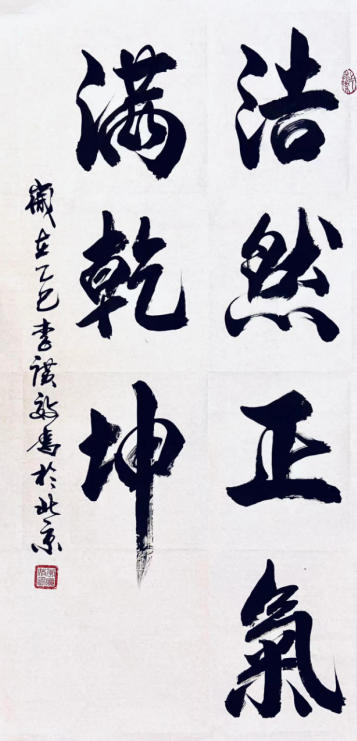 浩然正氣
满乾坤
歲在乙巳李謨敏書於北京